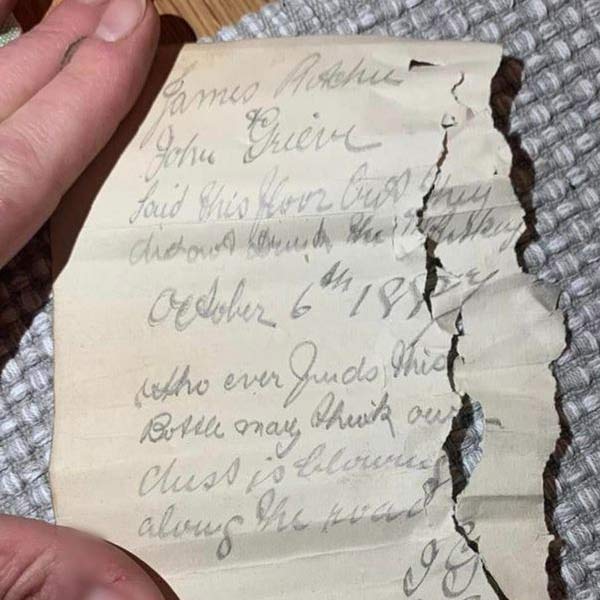 James Ritchie
& John Grieve
Laid this floor but they
did not drink the Whiskey
October 6th 1887
who ever finds this
Bottle may think our
dust is blowing
along the road
J G